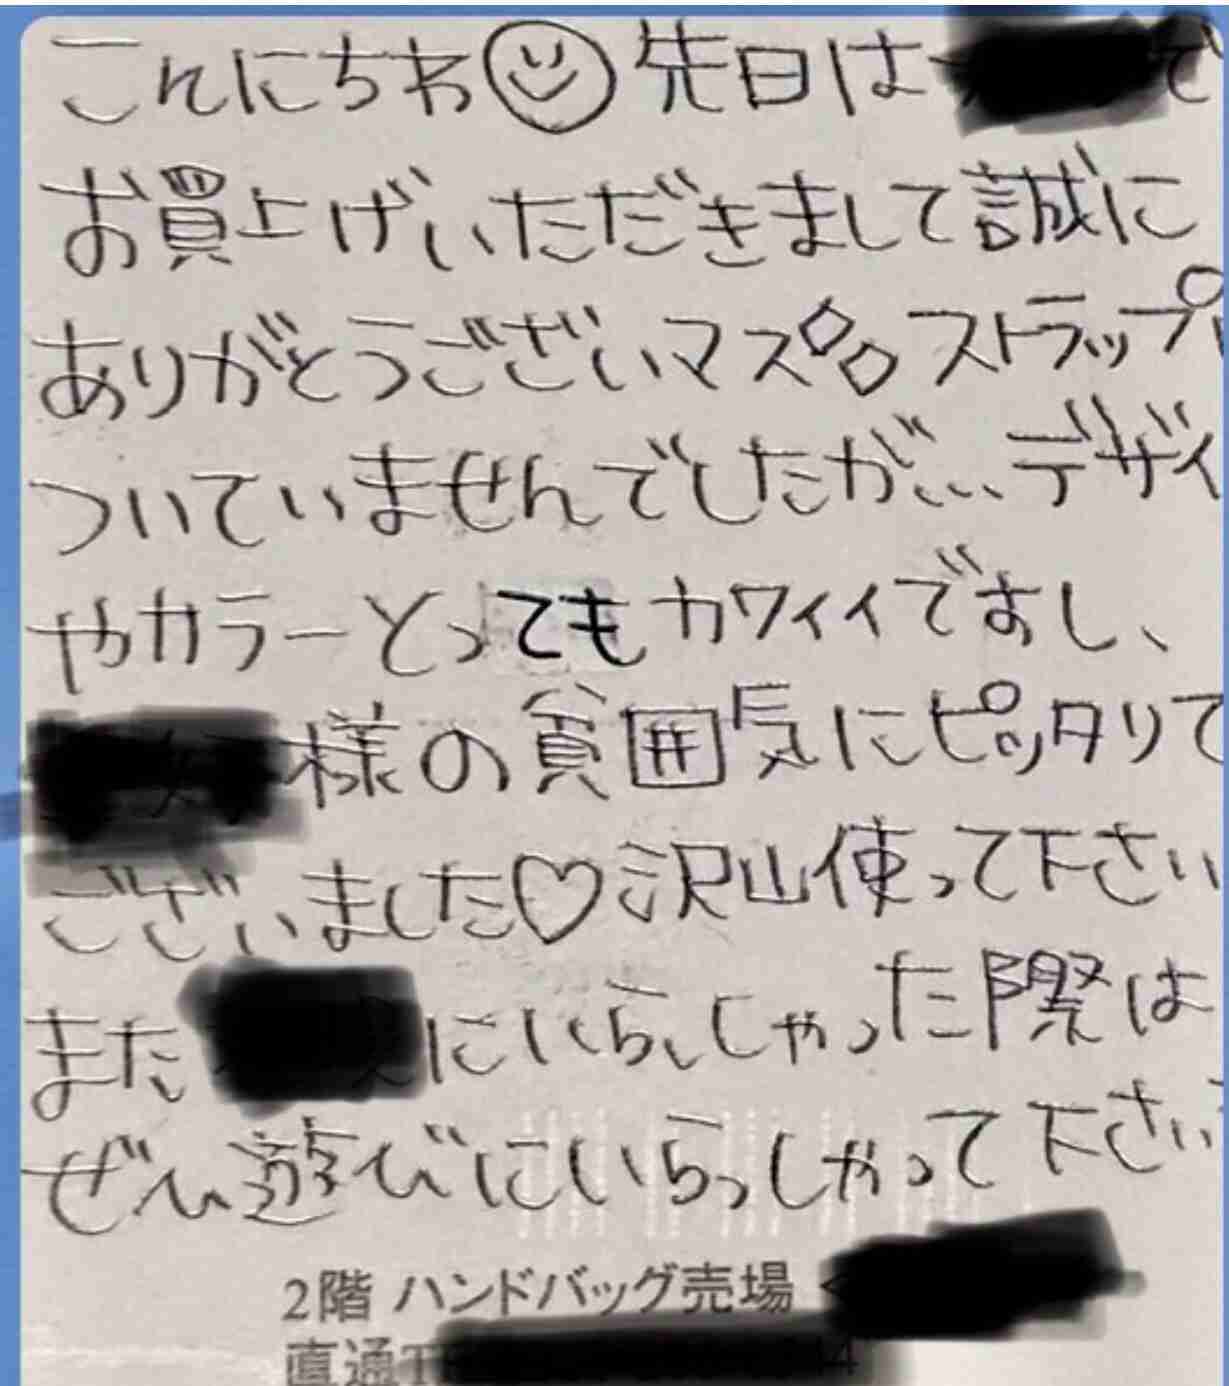 こんにちわ 先日は
お買上げいただきまして誠に
ありがとうございマス ストラップ
ついていませんでしたが… デザイ
やカラーとってもカワイイですし、
様の貧囲気にピッタリで
ございました♡沢山使って下さい
また にいらっしゃった際は
ぜひ遊びにいらっしゃって下さい
2階 ハンドバッグ売場
直通